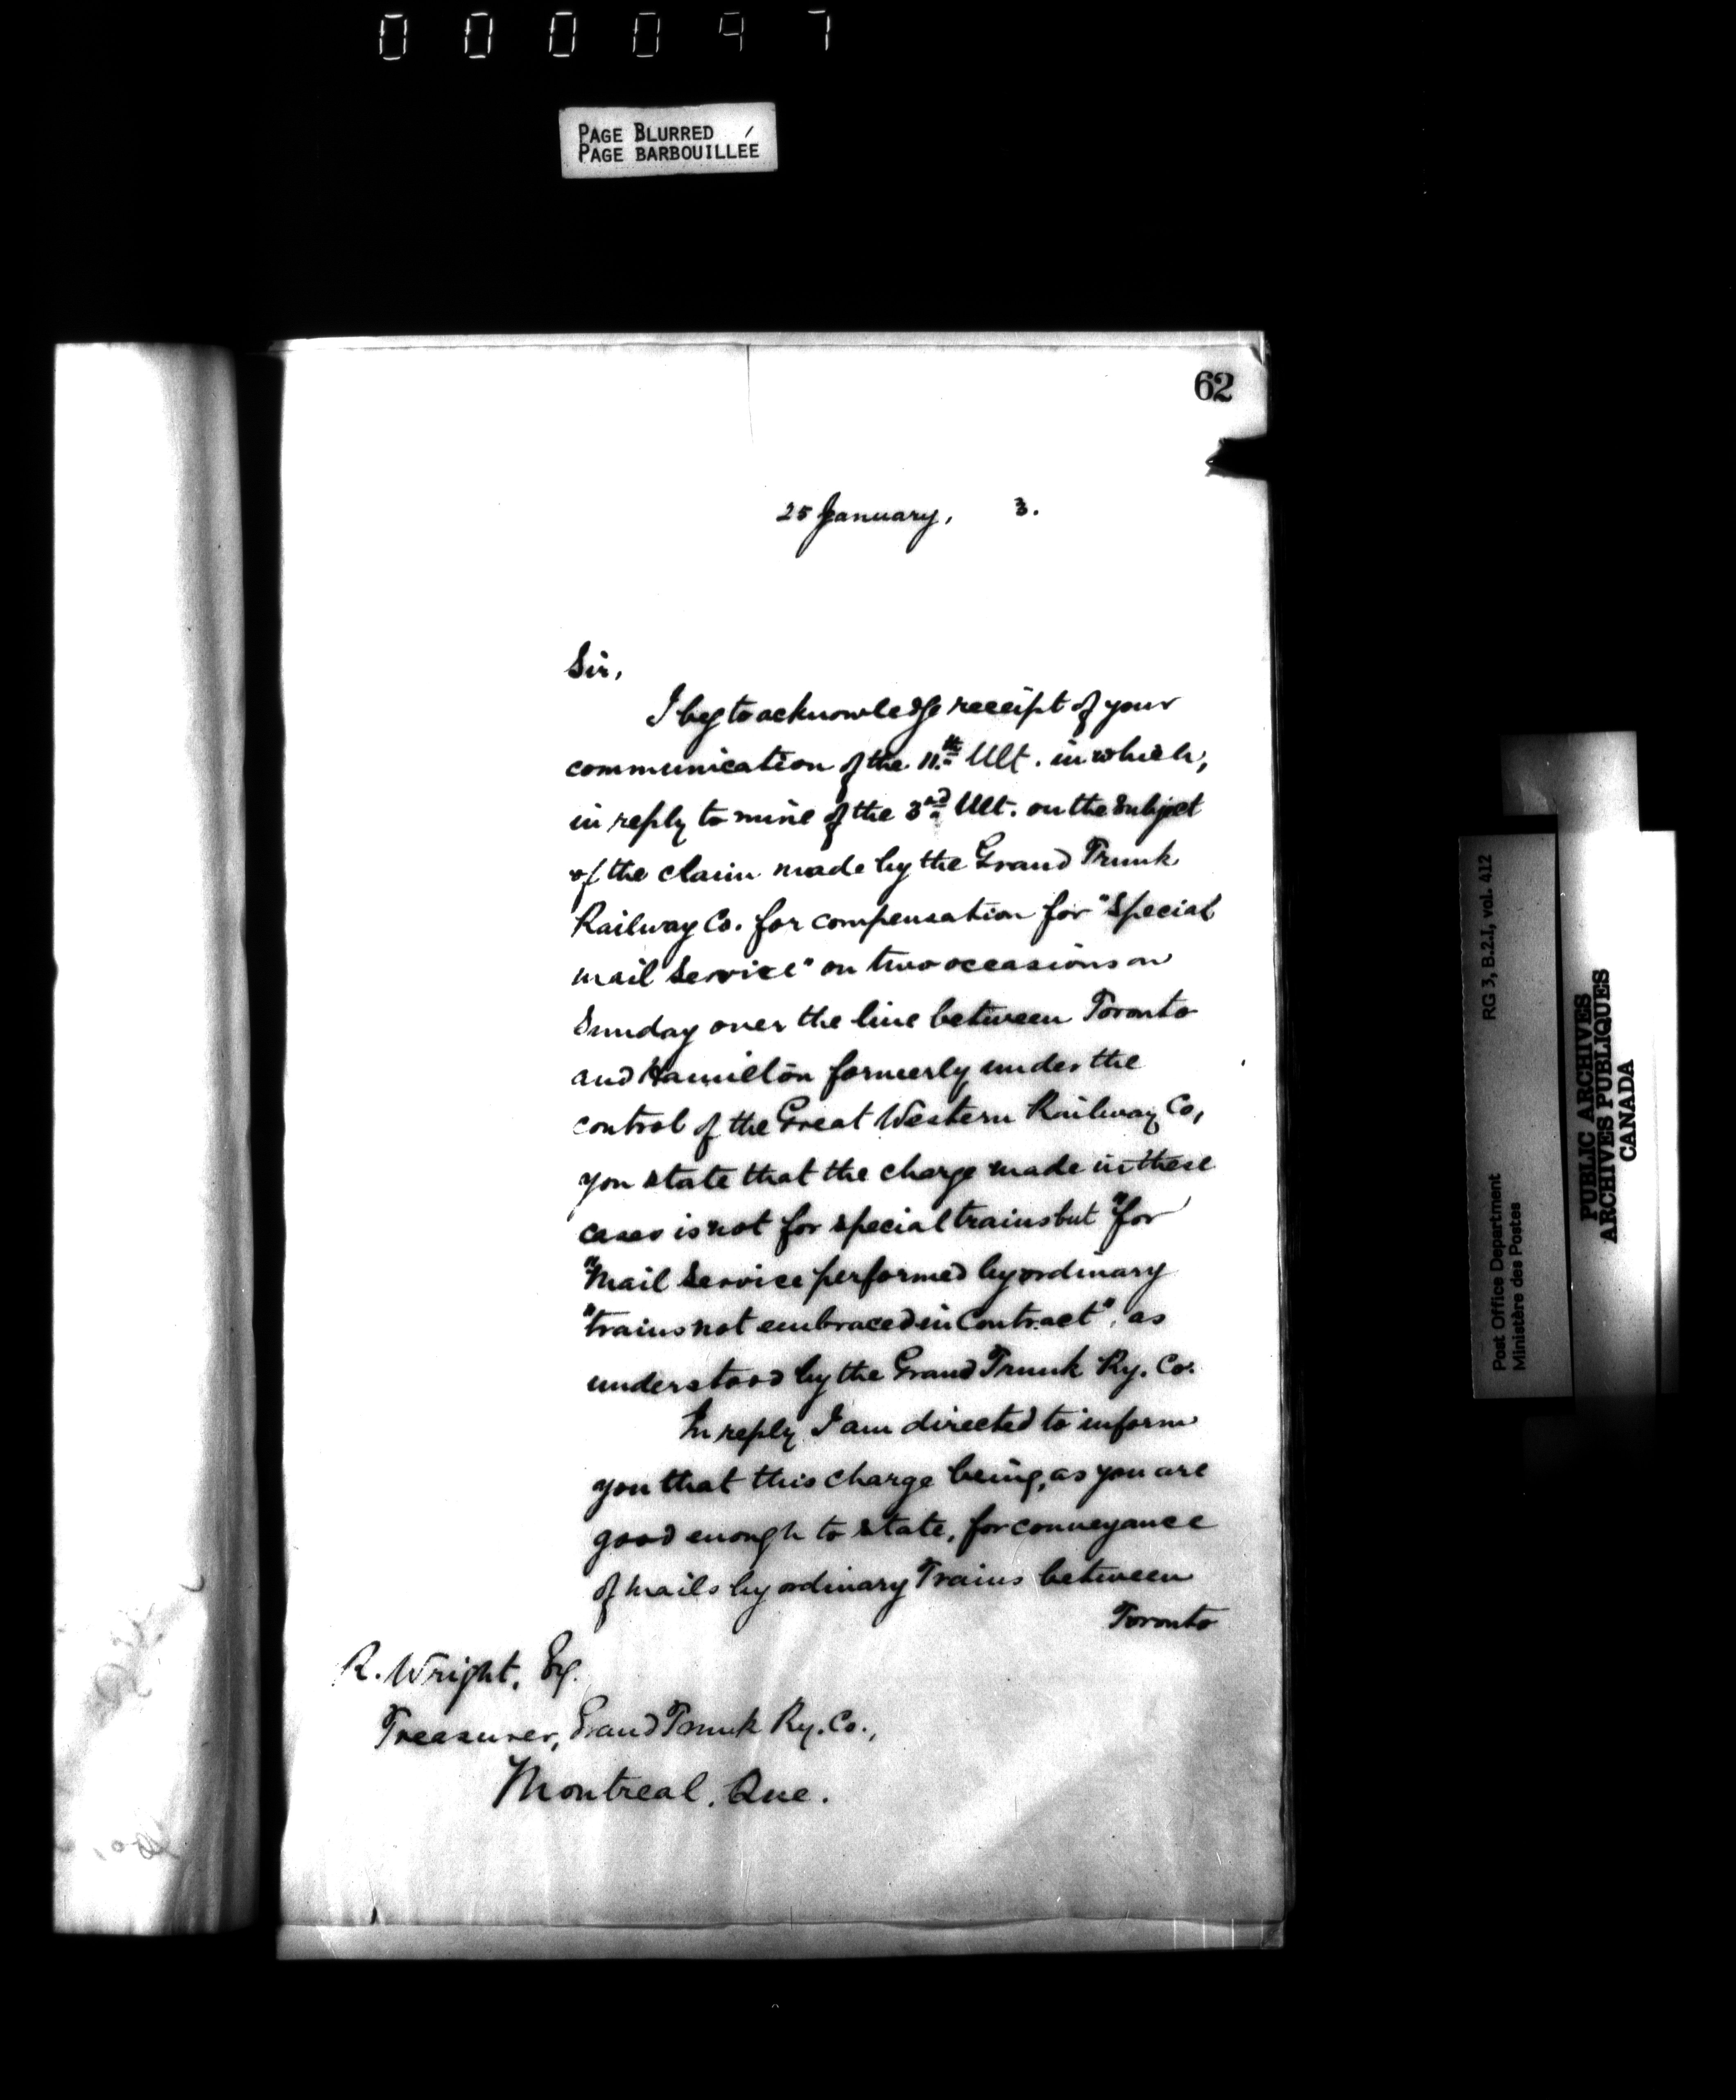 000097
PAGE BLURRED
PAGE BARBOUILLÉE
62
25 January, 3.
Sir,
I beg to acknowledge receipt of your
communication of the 11th Ult. in which,
in reply to mine of the 3rd Ult. on the subject
of the claim made by the Grand Trunk
Railway Co. for compensation for "special
mail service" on two occasions on
Sunday over the line between Toronto
and Hamilton formerly under the
control of the Great Western Railway Co,
you state that the charge made in these
cases is not for special trains but "for
"Mail Service performed by ordinary
"trains not embraced in Contract", as
understood by the Grand Trunk Ry. Co.
In reply I am directed to inform
you that this charge being, as you are
good enough to state, for conveyance
of mails by ordinary Trains between
Toronto
R. Wright, Esq.
Treasurer, Grand Trunk Ry. Co.,
Montreal, Que.
RG 3, B.2.I, vol. 412
Post Office Department
Ministère des Postes
PUBLIC ARCHIVES
ARCHIVES PUBLIQUES
CANADA